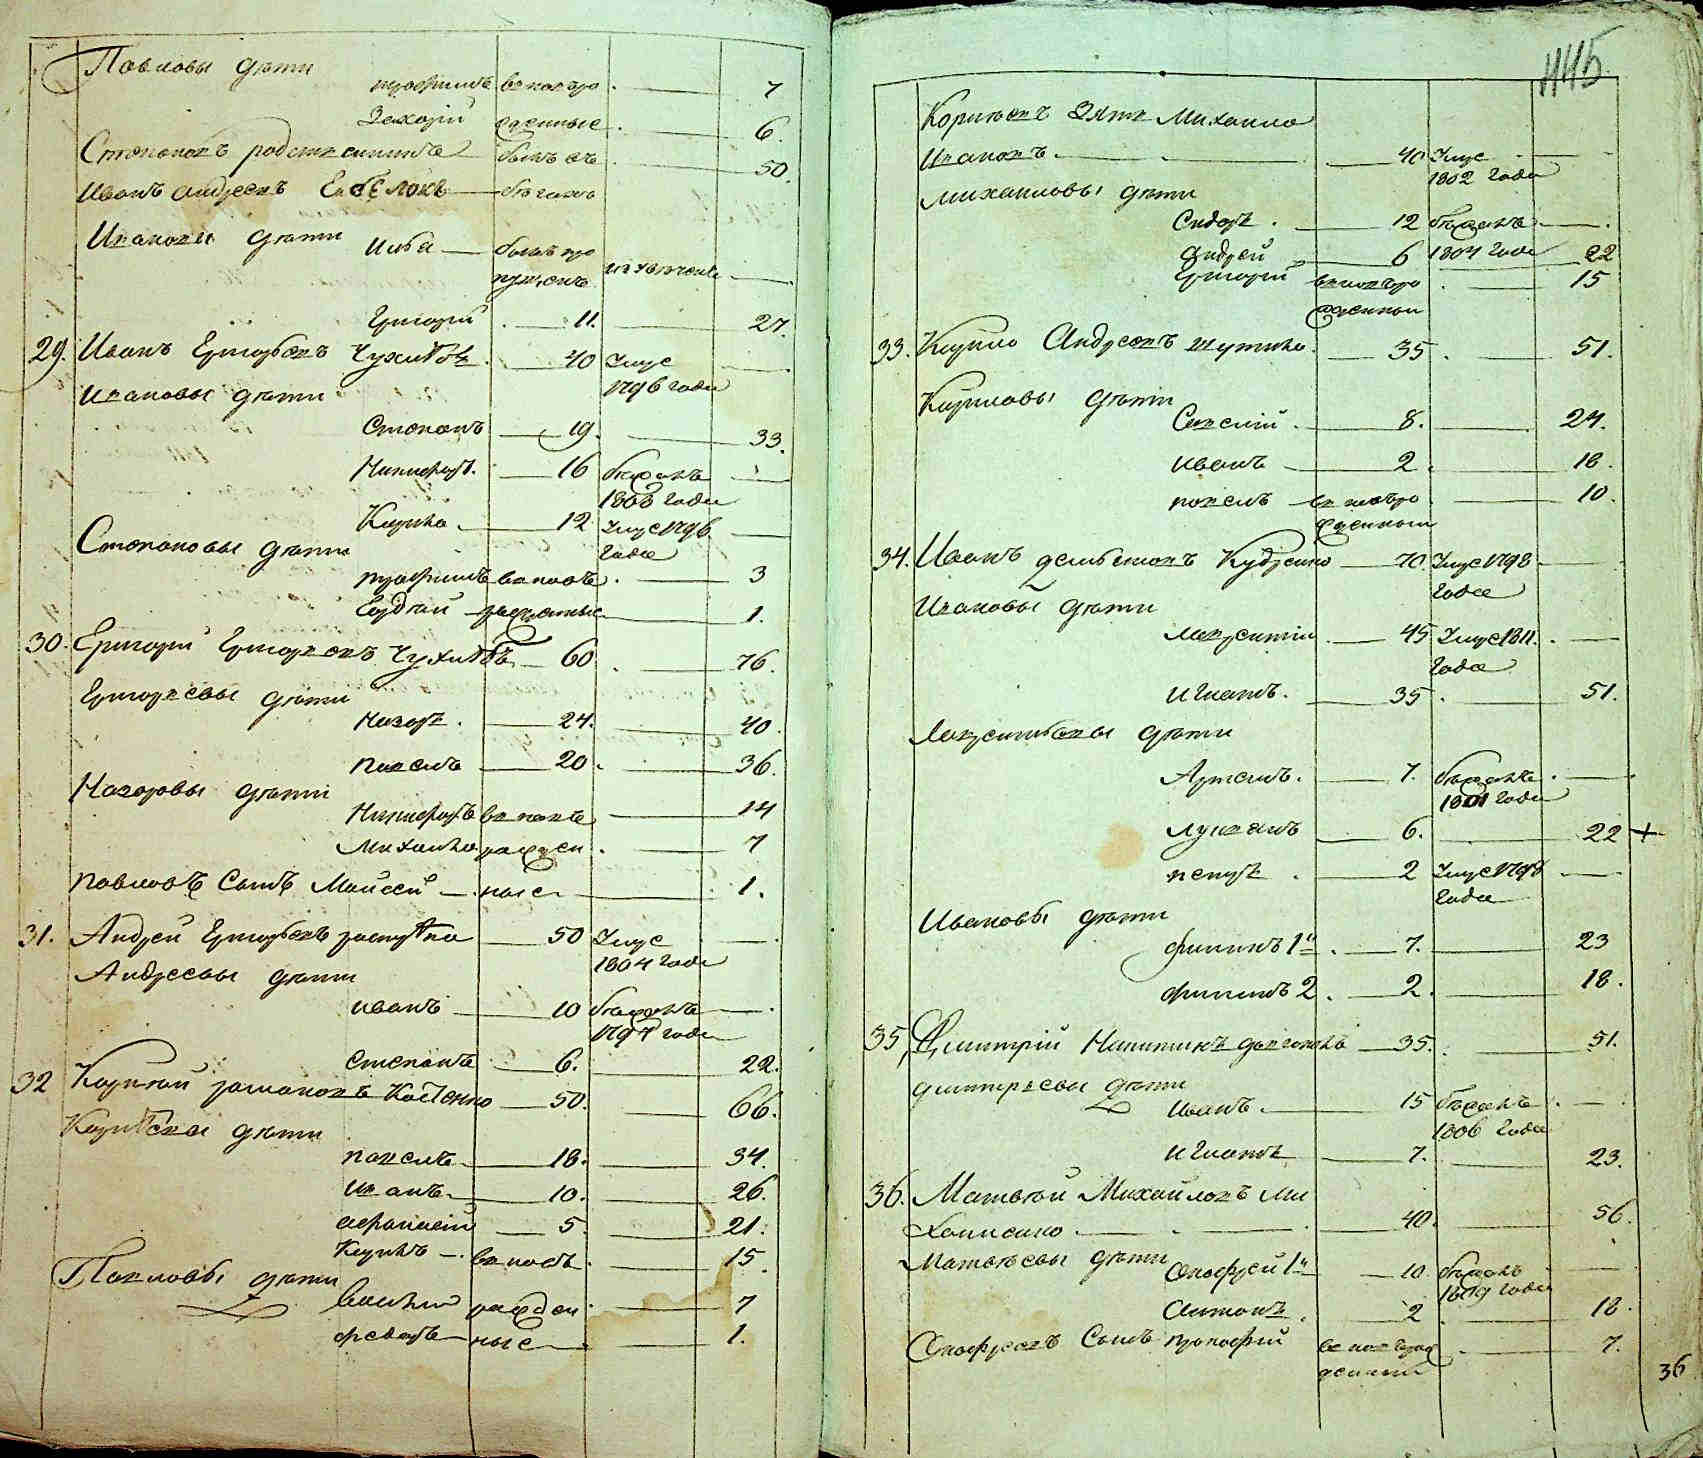 Павловы дѣти
трофимъ вновь ро 7
Захарій жденные 6
Степановъ родственникъ былъ въ 50
Иванъ Андреевъ бѣгахъ
Ивановы дѣти Илья былъ про
пущенъ
Григорій 11. 27.
29. Иванъ Григорьевъ 40 Умре
Ивановы дѣти 1796 года
Степанъ 19. 33.
Никифоръ. 16 бѣжавъ
1808 года
Кирило 12 Умре 1796
Степановы дѣти года
трофимъ вновь 3
Гордѣй рожденные 1.
30. Григорій Григорьевъ 60 76.
Григорьевы дѣти
Назаръ. 24. 40
Павелъ 20. 36.
Назаровы дѣти
Никифоръ вновь 14
Михайло рожден 7
Павловъ Сынъ Моисей ные 1.
31. Андрей Григорьевъ 50 Умре
1804 года
Андреевы дѣти
Иванъ 10 бѣжавъ
1797 года
Степанъ 6. 22.
32 Корнѣй Костенко 50. 66.
Корнѣевы дѣти
Павелъ 18. 34.
Иванъ 10. 26.
Афанасій 5 21.
Кирилъ вновь 15.
Павловы дѣти
Василій рожден 7
Федоръ ные 1.
1115
Корнѣевъ Зять Михайло
Ивановъ 40 Умре
1802 года
Михайловы дѣти
Сидоръ. 12 бѣжавъ
Андрей 6 1804 года 22
Григорій вновьро 15
жденной
33. Кирило Андреевъ Шутько 35. 51.
Кириловы дѣти
Савелій. 8. 24.
Иванъ 2. 18.
Павелъ вновьро 10.
жденной
34. Иванъ Кудренко 70. Умре 1798
года
Ивановы дѣти
Лаврентій 45 Умре 1811.
года
Игнатъ. 35. 51.
Лаврентьевы дѣти
Артемъ. 7. бѣжавъ
1801 года
Лукьянъ 6. 22 +
Петръ. 2 Умре 1798
года
Ивановы дѣти
Филипъ 1й 7. 23
Филипъ 2. 2. 18.
35, Дмитрій Никитинъ 35. 51.
Дмитріевы дѣти
Иванъ. 15 бѣжавъ
1806 года
Игнатъ 7. 23.
36. Матвѣй Михайловъ Ми
хайленко 40. 56.
Матвѣевы дѣти Онофрей 1й 10. бѣжавъ
1809 года
Антонъ. 2 18.
Онофреевъ Сынъ Прокофій вновьрож 7.
денный
36